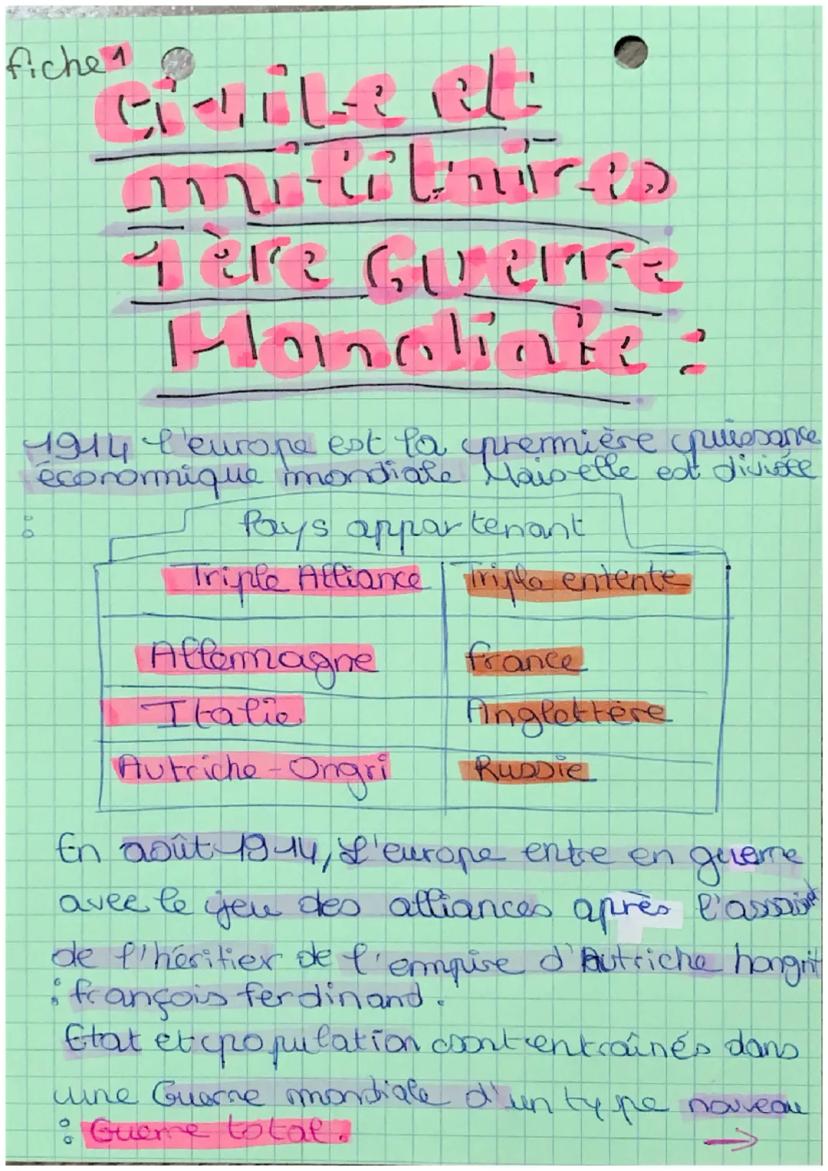 fiche 1
Civile et
militaires
1ère Guerre
Mondiale :
1914 l'europe est la première puissance
économique mondiale Mais elle est divisée
:
Pays appartenant
Triple Alliance Triple entente
Allemagne france
Italie Anglettère
Autriche-Ongri Russie
En août 1914, L'europe entre en guerre
avec le jeu des alliances après l'assasi
de l'héritier de l'empire d'Autriche hongri
: françois ferdinand.
Etat et population sont entraînés dans
une Guerre mondiale d'un type nouveau
: Guerre total. →